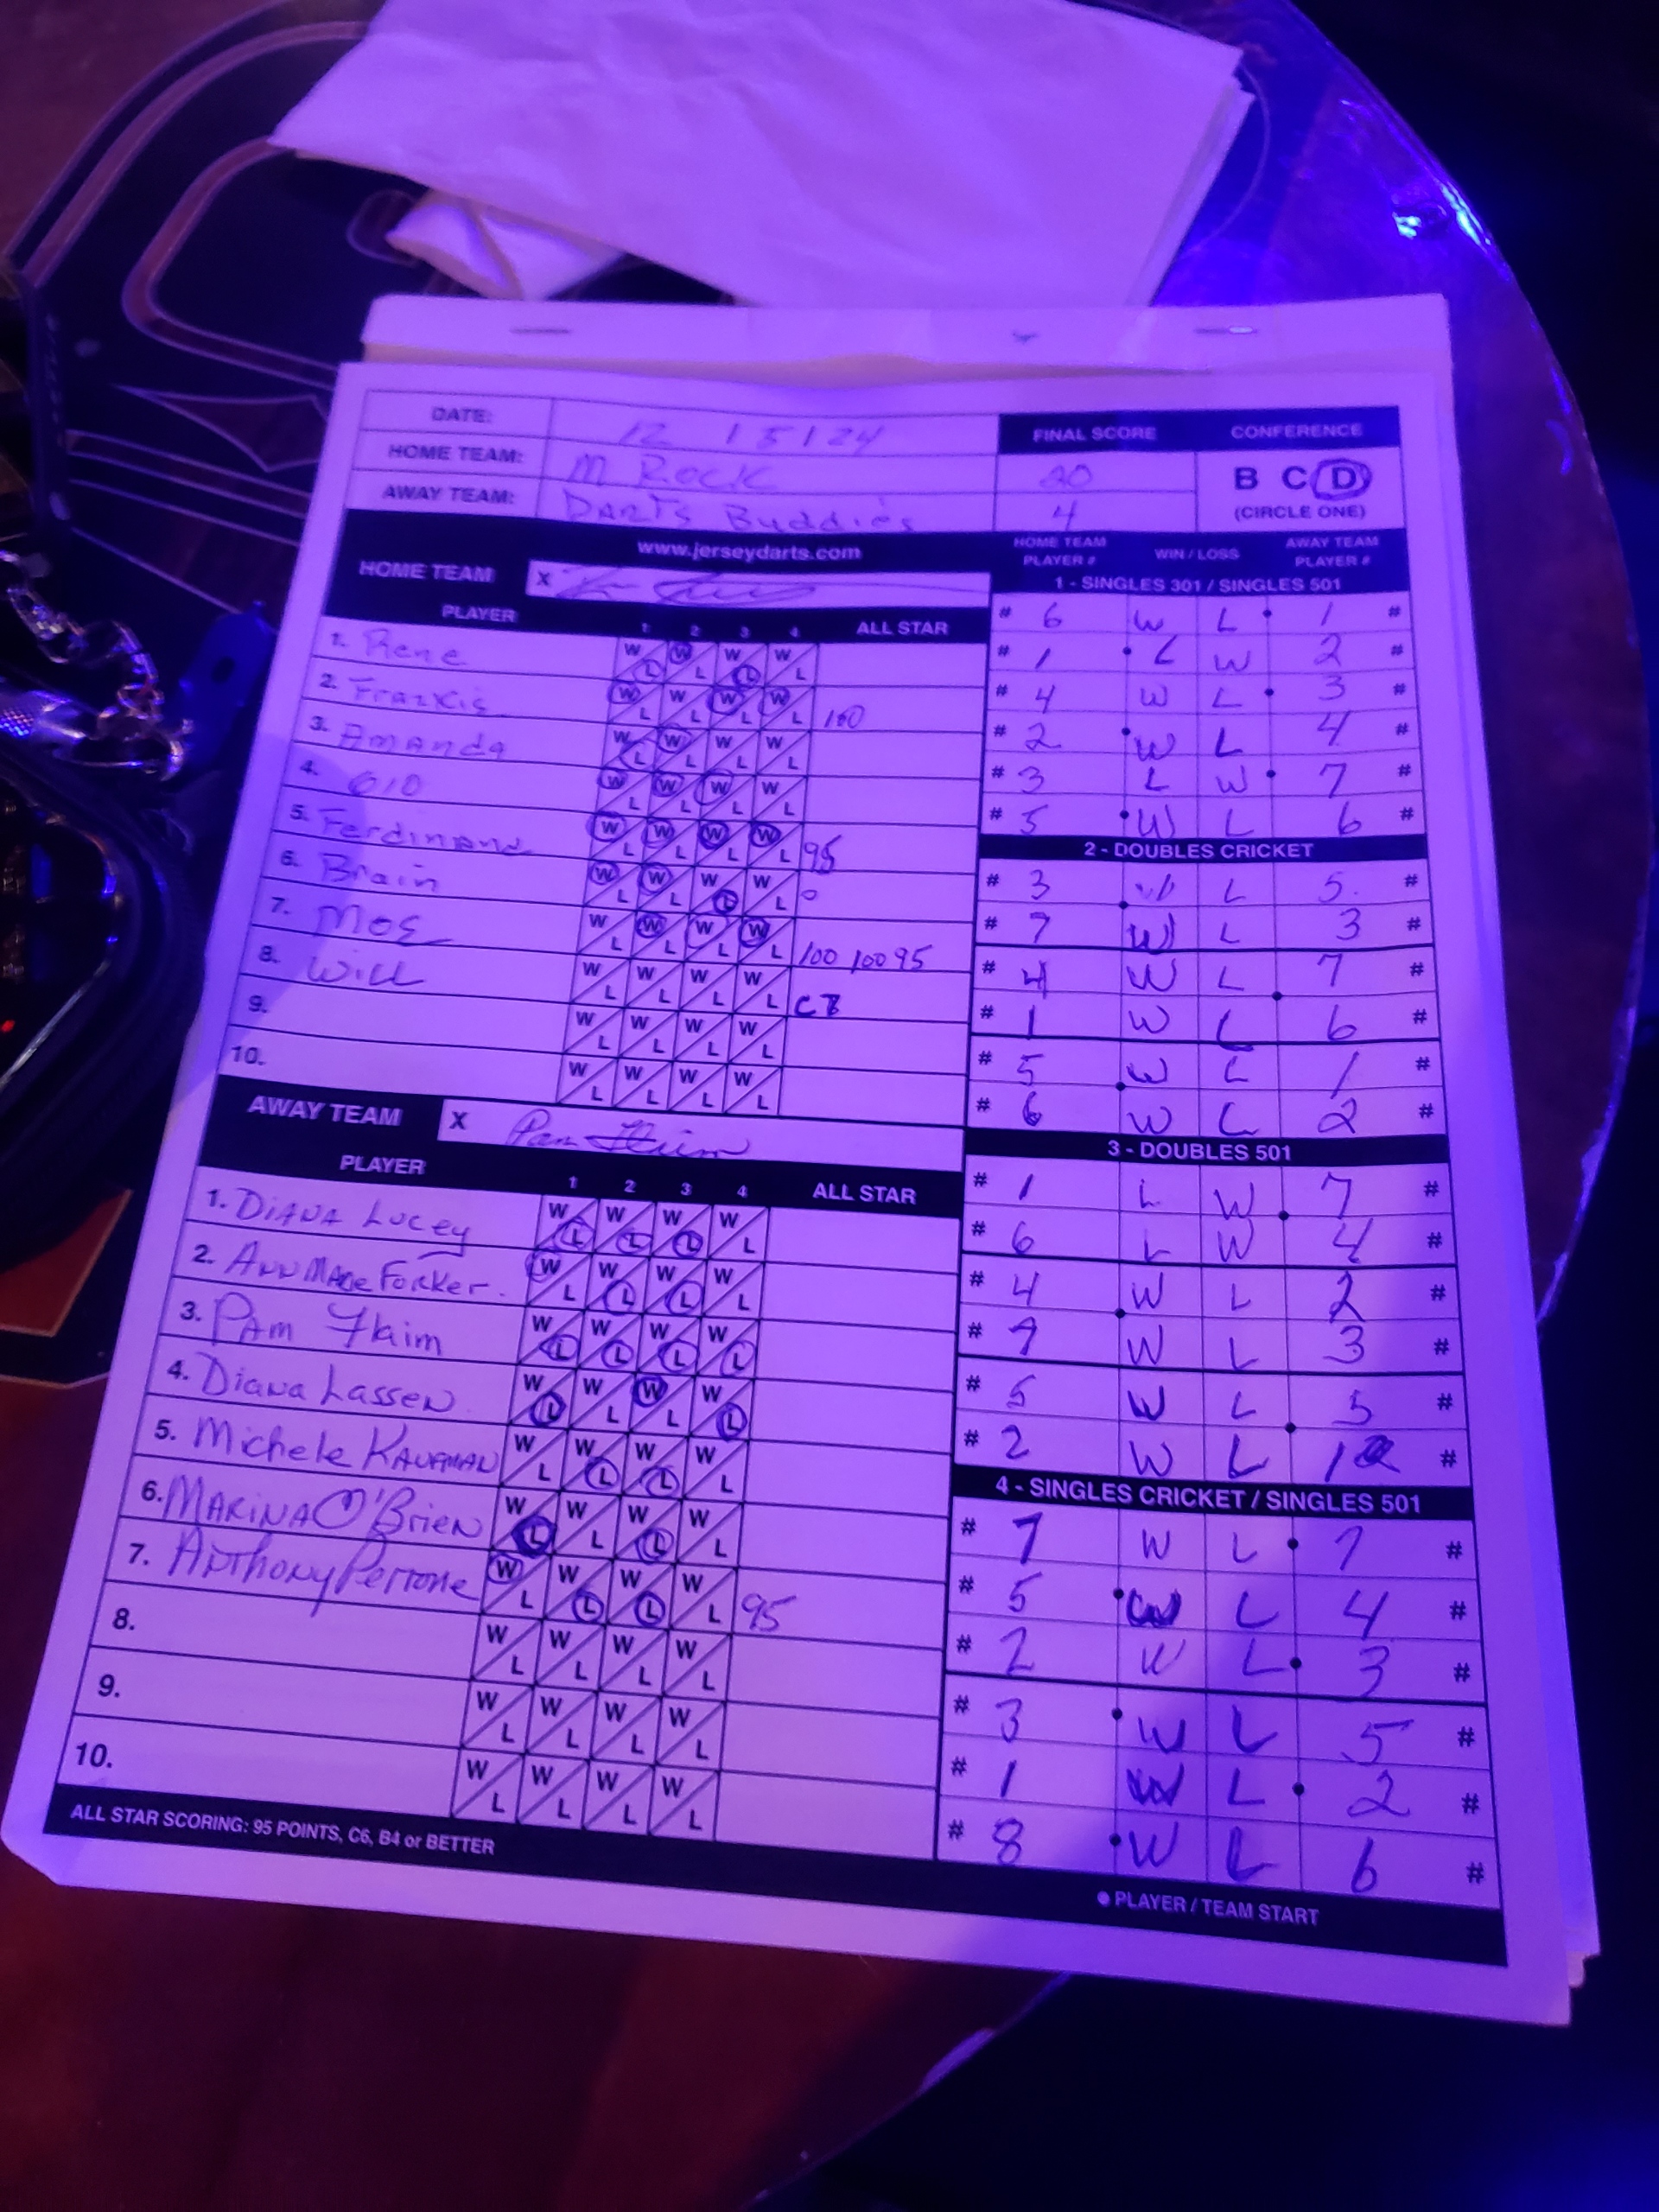 DATE: 12 15124
HOME TEAM: M Rock
AWAY TEAM: Darts Buddies
FINAL SCORE CONFERENCE
20 B C D
4 (CIRCLE ONE)
www.jerseydarts.com
HOME TEAM X
PLAYER 1 2 3 4 ALL STAR
1. Rene W L W L W L W L
2. Franxis W L W L W L W L 100
3. Amanda W L W L W L W L
4. GIO W L W L W L W L
5. Ferdinand W L W L W L W L 95
6. Brain W L W L W L W L 0
7. MOE W L W L W L W L 100 100 95
8. Will W L W L W L W L C7
9. W L W L W L W L
10. W L W L W L W L
AWAY TEAM X Pam Flaim
PLAYER 1 2 3 4 ALL STAR
1. Diana Lucey W L W L W L W L
2. AnnMarie Forker. W L W L W L W L
3. Pam Flaim W L W L W L W L
4. Diana Lassen. W L W L W L W L
5. Michele Kaufman W L W L W L W L
6. Marina O'Brien W L W L W L W L
7. Anthony Perrone W L W L W L W L 95
8. W L W L W L W L
9. W L W L W L W L
10. W L W L W L W L
ALL STAR SCORING: 95 POINTS, C6, B4 or BETTER
HOME TEAM PLAYER # WIN / LOSS AWAY TEAM PLAYER #
1 - SINGLES 301 / SINGLES 501
# 6 W L 1 #
# 1 L W 2 #
# 4 W L 3 #
# 2 W L 4 #
# 3 L W 7 #
# 5 W L 6 #
2 - DOUBLES CRICKET
# 3 W L 5. #
# 7 W L 3 #
# 4 W L 7 #
# 1 W L 6 #
# 5 W L 1 #
# 6 W L 2 #
3 - DOUBLES 501
# 1 L W 7 #
# 6 L W 4 #
# 4 W L 2 #
# 7 W L 3 #
# 5 W L 5 #
# 2 W L 1 #
4 - SINGLES CRICKET / SINGLES 501
# 7 W L 7 #
# 5 W L 4 #
# 2 W L 3 #
# 3 W L 5 #
# 1 W L 2 #
# 8 W L 6 #
● PLAYER / TEAM START